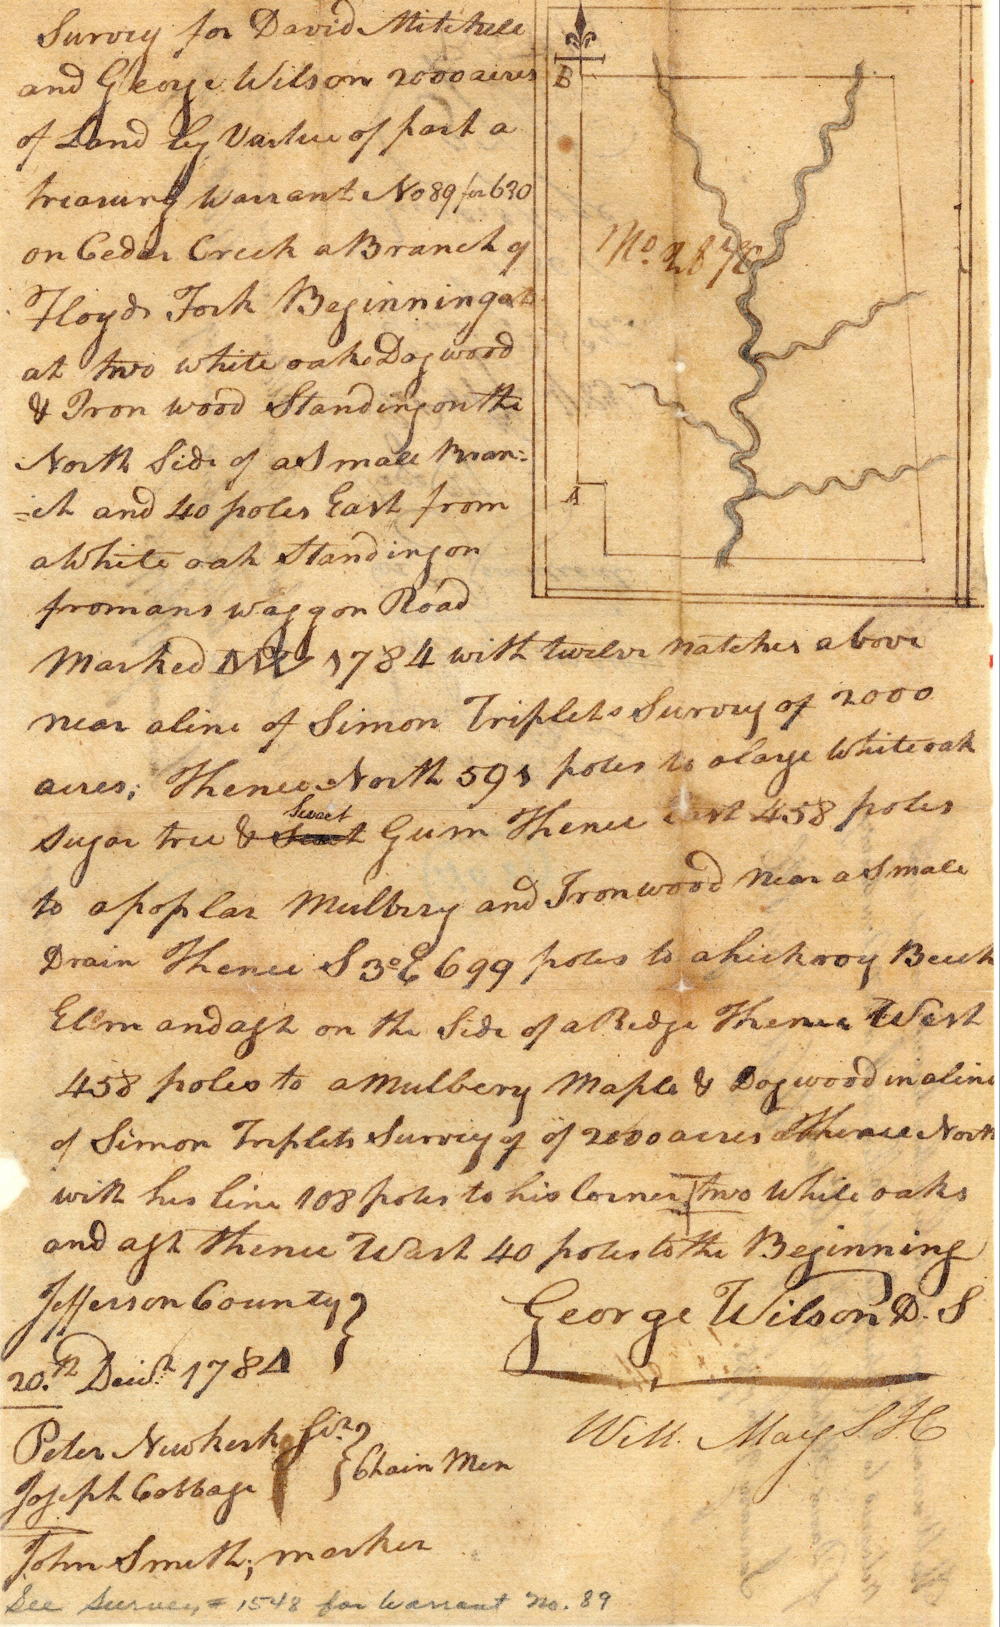 Survey for David Mitchell
and George Wilson 2000 acres
of Land by Vartue of part a
treasury Warrant No 89 for 630
on Ceder Creek a Branch of
Floyds Fork Beginning at
at two white oaks Dogwood
& Iron wood Standing on the
North Side of a Small Bran=
=ch and 40 poles East from
a White oak Standing on
fromans waggon Road
Marked 1784 with twelve natches above
near a line of Simon Triplets Survey of 2000
acres; Thence North 591 poles to a large White oak
Sweet
sugar tree & Gum Thence East 458 poles
to a poplar Mulbery and Ironwood near a Small
Drain Thence S 3° E 699 poles to a hickroy Beech
Ellm and ash on the Side of a Redge Thence West
458 poles to a Mulbery Maple & Dogwood in a line
of Simon Triplets Survey of of 2000 acres Thence North
with his line 108 poles to his Corner two White oaks
and ash thence West 40 poles to the Beginning
Jefferson County
20th Decr 1784
George Wilson D. S
Will. May S J C
Peter Newkerk Sir
Joseph Cobbage
Chain Men
John Smith; marker
See Survey # 1548 for Warrant No. 89
B
No. 2878
A